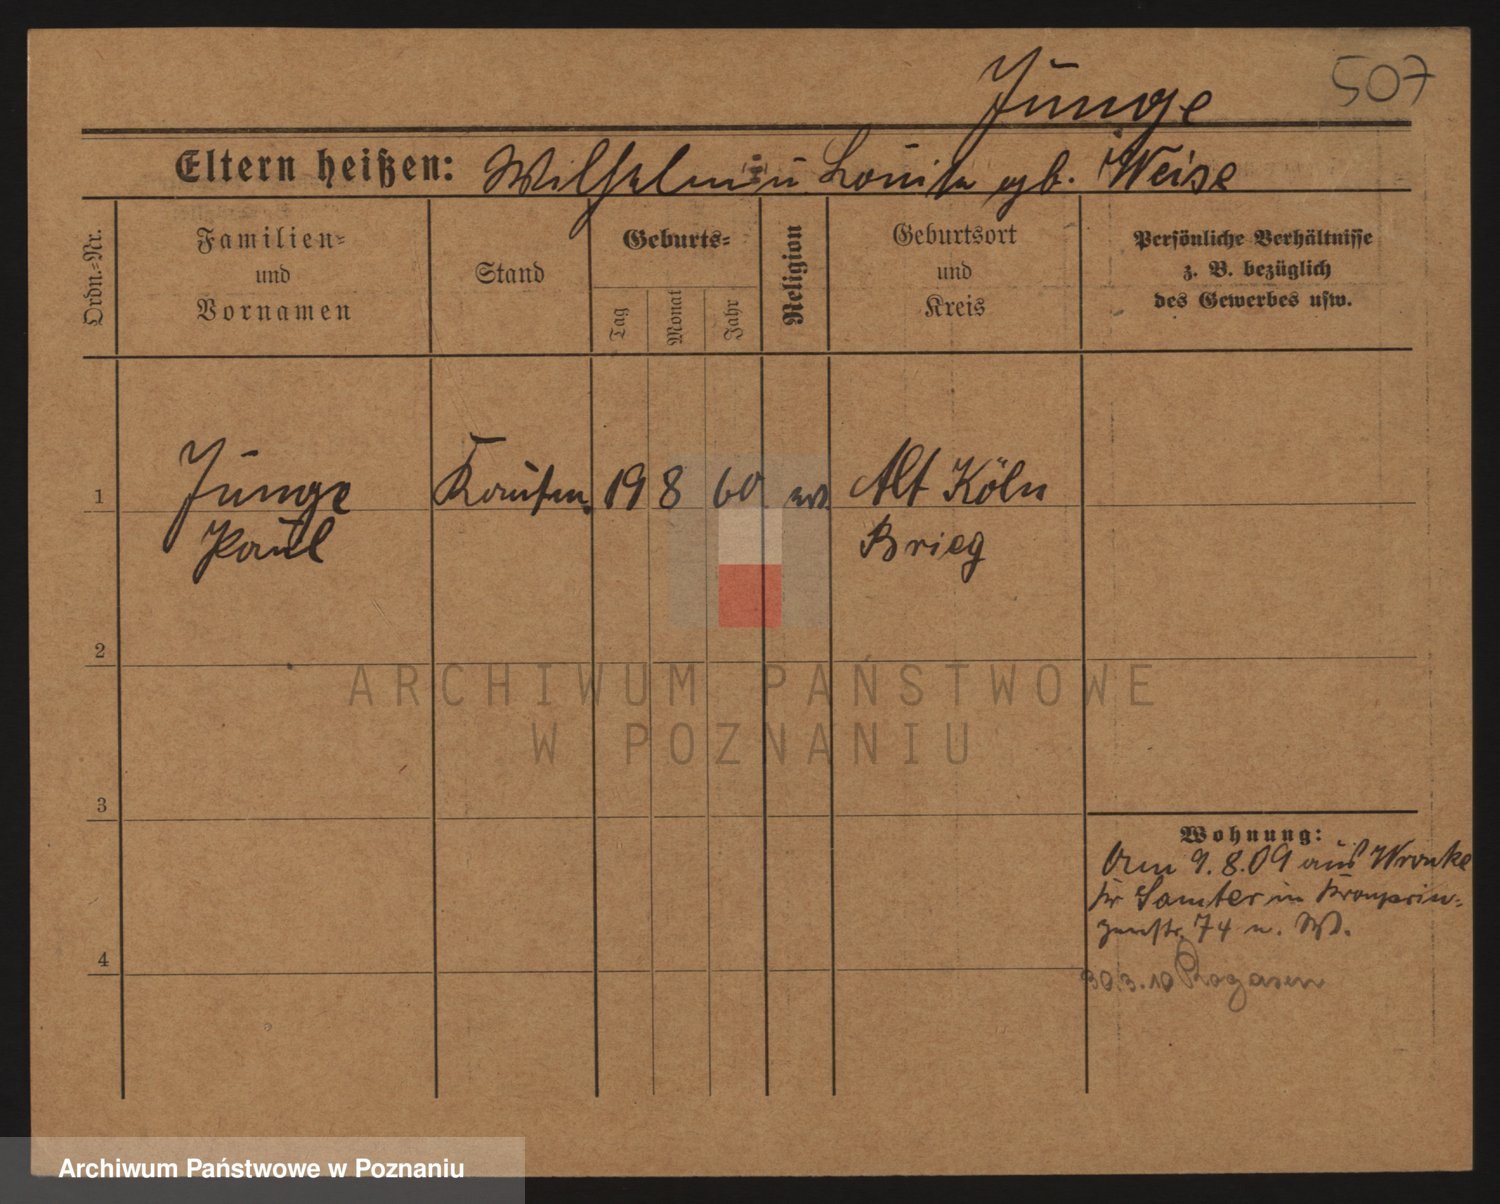 507
Junge
Eltern heißen: Wilhelm u Louise gb. Weise
Ordn.=Nr.
Familien=
und
Vornamen
Stand
Geburts=
Tag
Monat
Jahr
Religion
Geburtsort
und
Kreis
Persönliche Verhältnisse
z. B. bezüglich
des Gewerbes usw.
1 Junge Kaufm. 19 8 60 ev. Alt Köln
Paul Brieg
2
3
4
Wohnung:
Am 9.8.09 aus Wronke
Kr Samter in Kronprin=
zenstr. 74 n. W.
30.3.10 Rogasen
ARCHIWUM PAŃSTWOWE
W POZNANIU
Archiwum Państwowe w Poznaniu